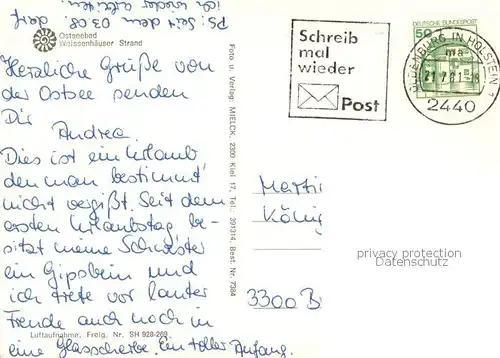 PS: Seit dem 03.08. darf
ich wieder arbeiten.
Ostseebad
Weissenhäuser Strand
Herzliche Grüße von
der Ostsee senden
Dir Andrea.
Dies ist ein Urlaub,
den man bestimmt
nicht vergißt. Seit dem
ersten Urlaubstag be-
sitzt meine Schwester
ein Gipsbein und
ich trete vor lauter
Freude auch noch in
eine Glasscherbe. Ein toller Anfang.
Luftaufnahme, Freig. Nr. SH 928-269
Foto u. Verlag: MIELCK, 2300 Kiel 17, Tel.: 391314, Best. Nr. 7384
Schreib
mal
wieder
Post
DEUTSCHE BUNDESPOST
50
OLDENBURG IN HOLSTEIN 1
ma
2440
Martin
König
3300 B
privacy protection
Datenschutz